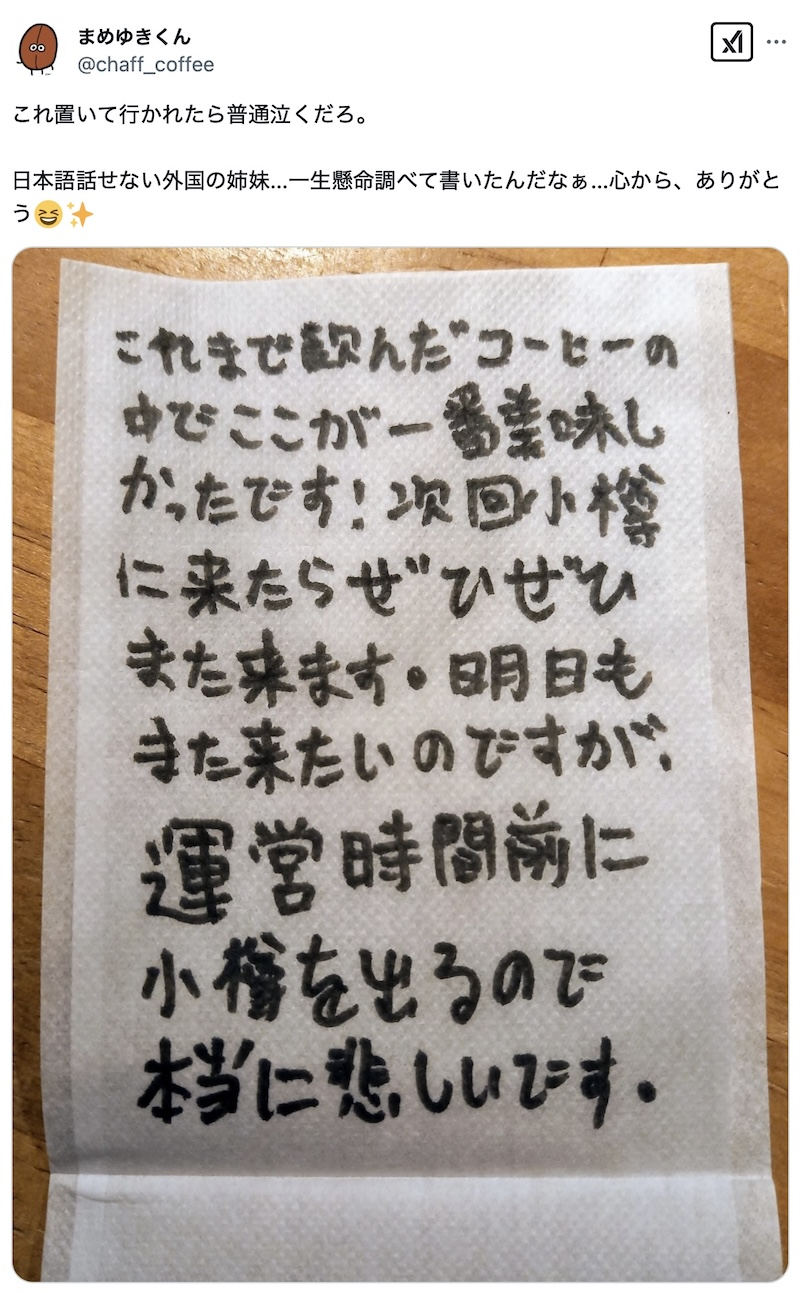 まめゆきくん
@chaff_coffee
これ置いて行かれたら普通泣くだろ。
日本語話せない外国の姉妹...一生懸命調べて書いたんだなぁ...心から、ありがと
う😆✨
これまで飲んだコーヒーの
中でここが一番美味し
かったです!次回小樽
に来たらぜひぜひ
また来ます。明日も
また来たいのですが、
運営時間前に
小樽を出るので
本当に悲しいです。